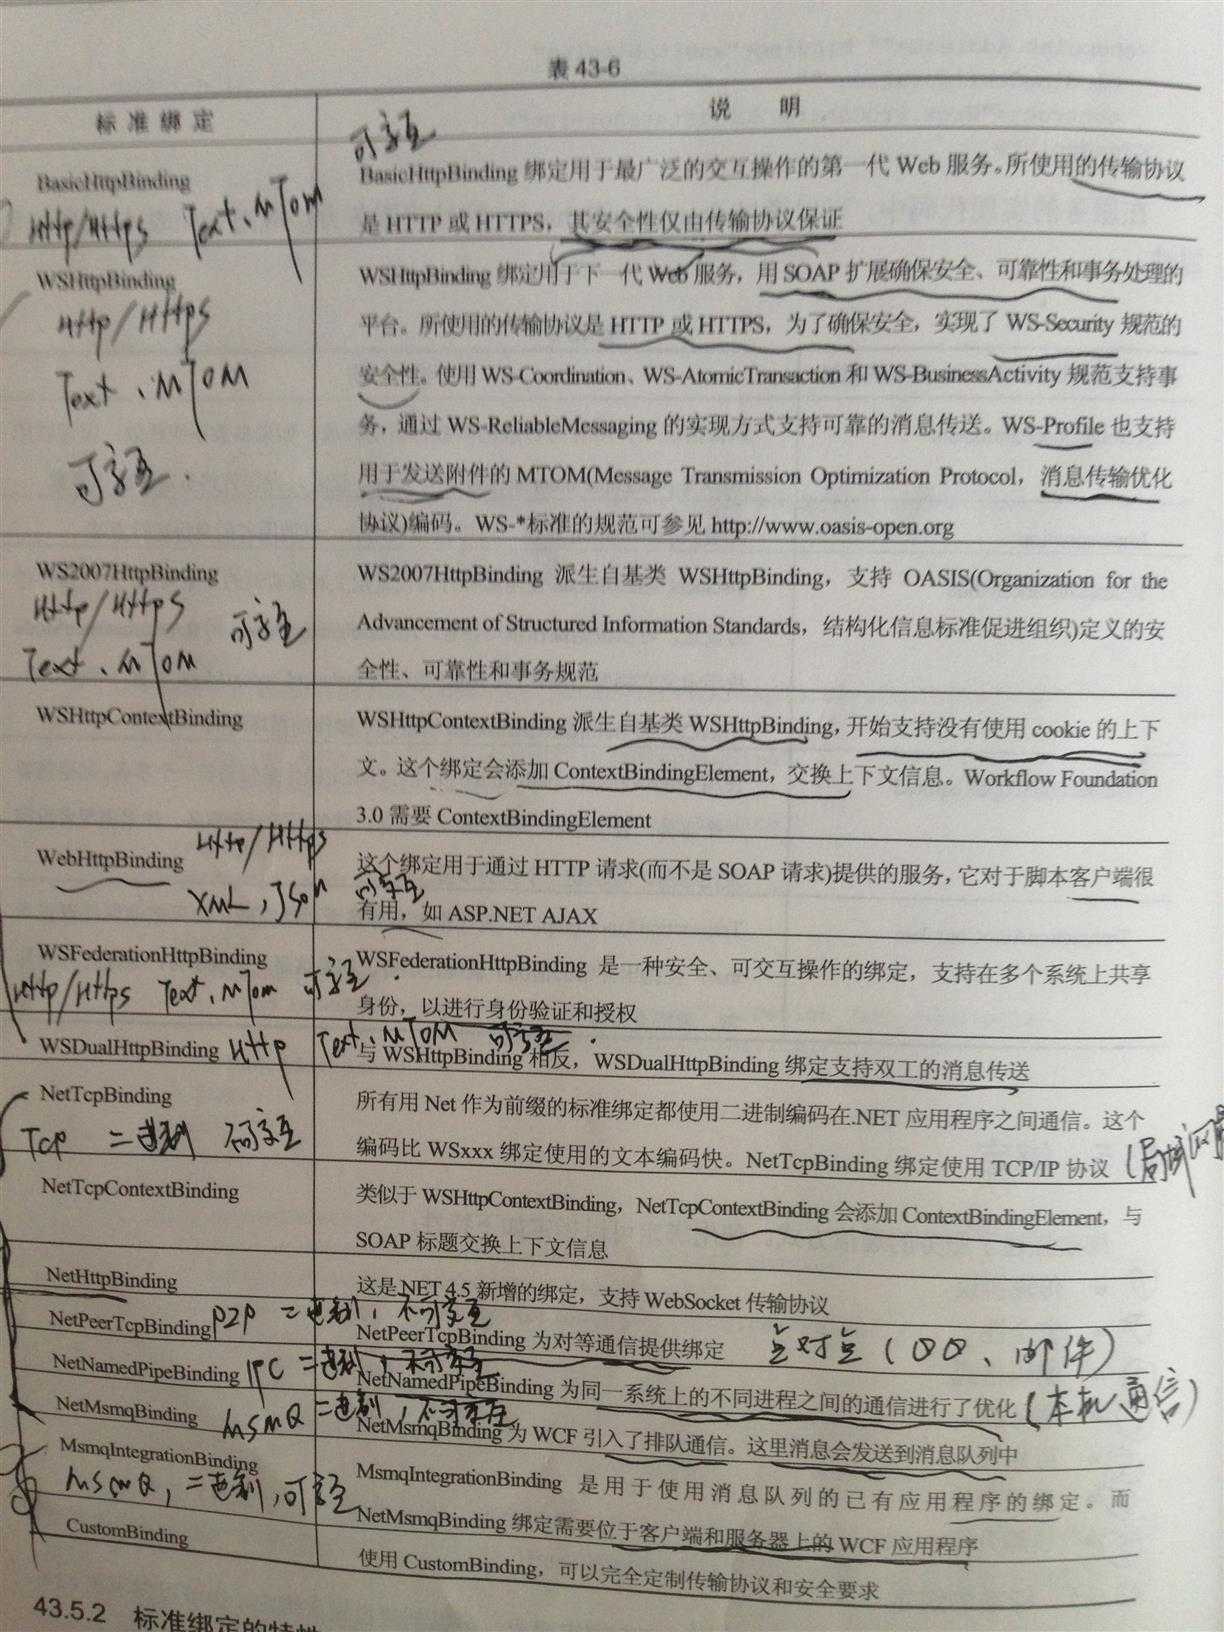 表 43-6
标 准 绑 定
说 明
可交互
BasicHttpBinding
BasicHttpBinding 绑定用于最广泛的交互操作的第一代 Web 服务。所使用的传输协议
Http/Https Text、MTOM
是 HTTP 或 HTTPS，其安全性仅由传输协议保证
WSHttpBinding
WSHttpBinding 绑定用于下一代 Web 服务，用 SOAP 扩展确保安全、可靠性和事务处理的
Http/Https
平台。所使用的传输协议是 HTTP 或 HTTPS，为了确保安全，实现了 WS-Security 规范的
Text、MTOM
安全性。使用 WS-Coordination、WS-AtomicTransaction 和 WS-BusinessActivity 规范支持事
务，通过 WS-ReliableMessaging 的实现方式支持可靠的消息传送。WS-Profile 也支持
可交互.
用于发送附件的 MTOM(Message Transmission Optimization Protocol，消息传输优化
协议)编码。WS-*标准的规范可参见 http://www.oasis-open.org
WS2007HttpBinding
WS2007HttpBinding 派生自基类 WSHttpBinding，支持 OASIS(Organization for the
Http/Https 可交互
Advancement of Structured Information Standards，结构化信息标准促进组织)定义的安
Text、MTOM
全性、可靠性和事务规范
WSHttpContextBinding
WSHttpContextBinding 派生自基类 WSHttpBinding，开始支持没有使用 cookie 的上下
文。这个绑定会添加 ContextBindingElement，交换上下文信息。Workflow Foundation
3.0 需要 ContextBindingElement
WebHttpBinding Http/Https
这个绑定用于通过 HTTP 请求(而不是 SOAP 请求)提供的服务，它对于脚本客户端很
XML，JSON 可交互
有用，如 ASP.NET AJAX
WSFederationHttpBinding
WSFederationHttpBinding 是一种安全、可交互操作的绑定，支持在多个系统上共享
Http/Https Text、MTOM 可交互.
身份，以进行身份验证和授权
WSDualHttpBinding Http Text、MTOM 可交互.
与 WSHttpBinding 相反，WSDualHttpBinding 绑定支持双工的消息传送
NetTcpBinding
所有用 Net 作为前缀的标准绑定都使用二进制编码在.NET 应用程序之间通信。这个
Tcp 二进制 不可交互
编码比 WSxxx 绑定使用的文本编码快。NetTcpBinding 绑定使用 TCP/IP 协议 (局域网
NetTcpContextBinding
类似于 WSHttpContextBinding，NetTcpContextBinding 会添加 ContextBindingElement，与
SOAP 标题交换上下文信息
NetHttpBinding
这是.NET 4.5 新增的绑定，支持 WebSocket 传输协议
NetPeerTcpBinding P2P 二进制，不可交互
NetPeerTcpBinding 为对等通信提供绑定 点对点(QQ、邮件)
NetNamedPipeBinding IPC 二进制，不可交互
NetNamedPipeBinding 为同一系统上的不同进程之间的通信进行了优化 (本机通信)
NetMsmqBinding MSMQ 二进制，不可交互
NetMsmqBinding 为 WCF 引入了排队通信。这里消息会发送到消息队列中
MsmqIntegrationBinding
MsmqIntegrationBinding 是用于使用消息队列的已有应用程序的绑定。而
MSMQ，二进制，可交互
NetMsmqBinding 绑定需要位于客户端和服务器上的 WCF 应用程序
CustomBinding
使用 CustomBinding，可以完全定制传输协议和安全要求
43.5.2 标准绑定的特性